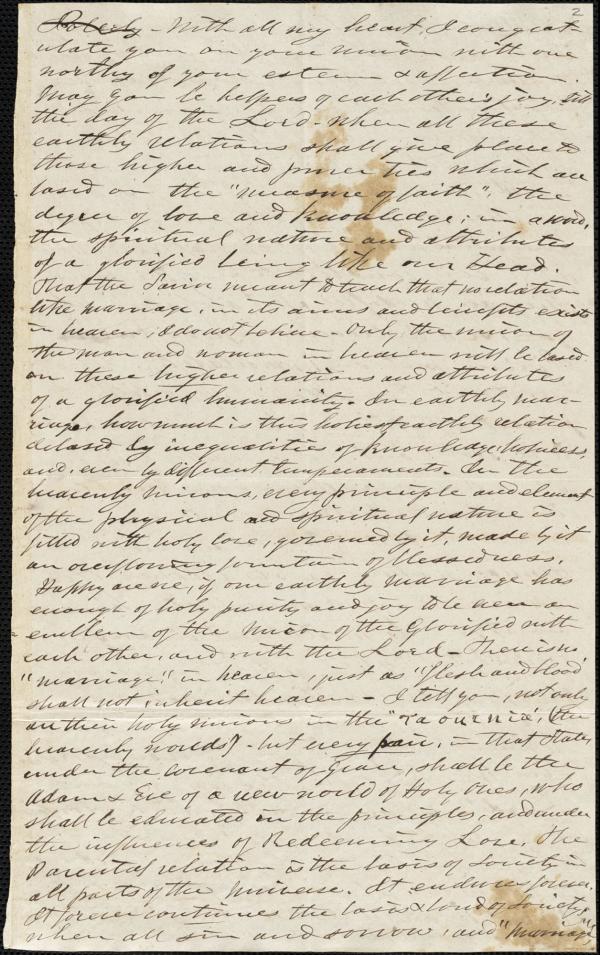 2
- With all my heart, I congrat-
ulate you on your union with one
worthy of your esteem & affection.
May you be helpers of each other's joy, till
the day of the Lord - when all these
earthly relations shall give place to
those higher and purer ties which are
based on the "measure of faith", the
degree of love and knowledge; in a word,
the spiritual nature and attributes
of a glorified being like our Head.
That the Savior meant to teach that no relation
like marriage, in its aims and benefits exists
in heaven, I do not believe - Only, the union of
the man and woman in heaven will be based
on these higher relations and attributes
of a glorified humanity. In earthly mar-
riage, how much is this holiest earthly relation
debased by inequalities of knowledge, holiness,
and, even by different temperaments. In the
heavenly unions, every principle and element
of the physical and spiritual nature is
filled with holy love, governed by it made by it
an overflowing fountain of blessedness.
Happy are we, if our earthly marriage has
enough of holy purity and joy to be even an
emblem of the Union of the Glorified with
each other, and with the Lord - There is no
"marriage" in heaven, just as "flesh and blood
shall not inherit heaven - I tell you, not only
are their holy unions in the (the
heavenly worlds) - but every pair, in that State,
under the covenant of Grace, shall be the
Adam & Eve of a new world of Holy Ones, who
shall be educated in the principles, and under
the influences of Redeeming Love. The
Parental relation is the basis of Society in
all parts of the Universe. It endures forever.
It forever continues the basis & bond of Society,
when all sin and sorrow, and "marriage",